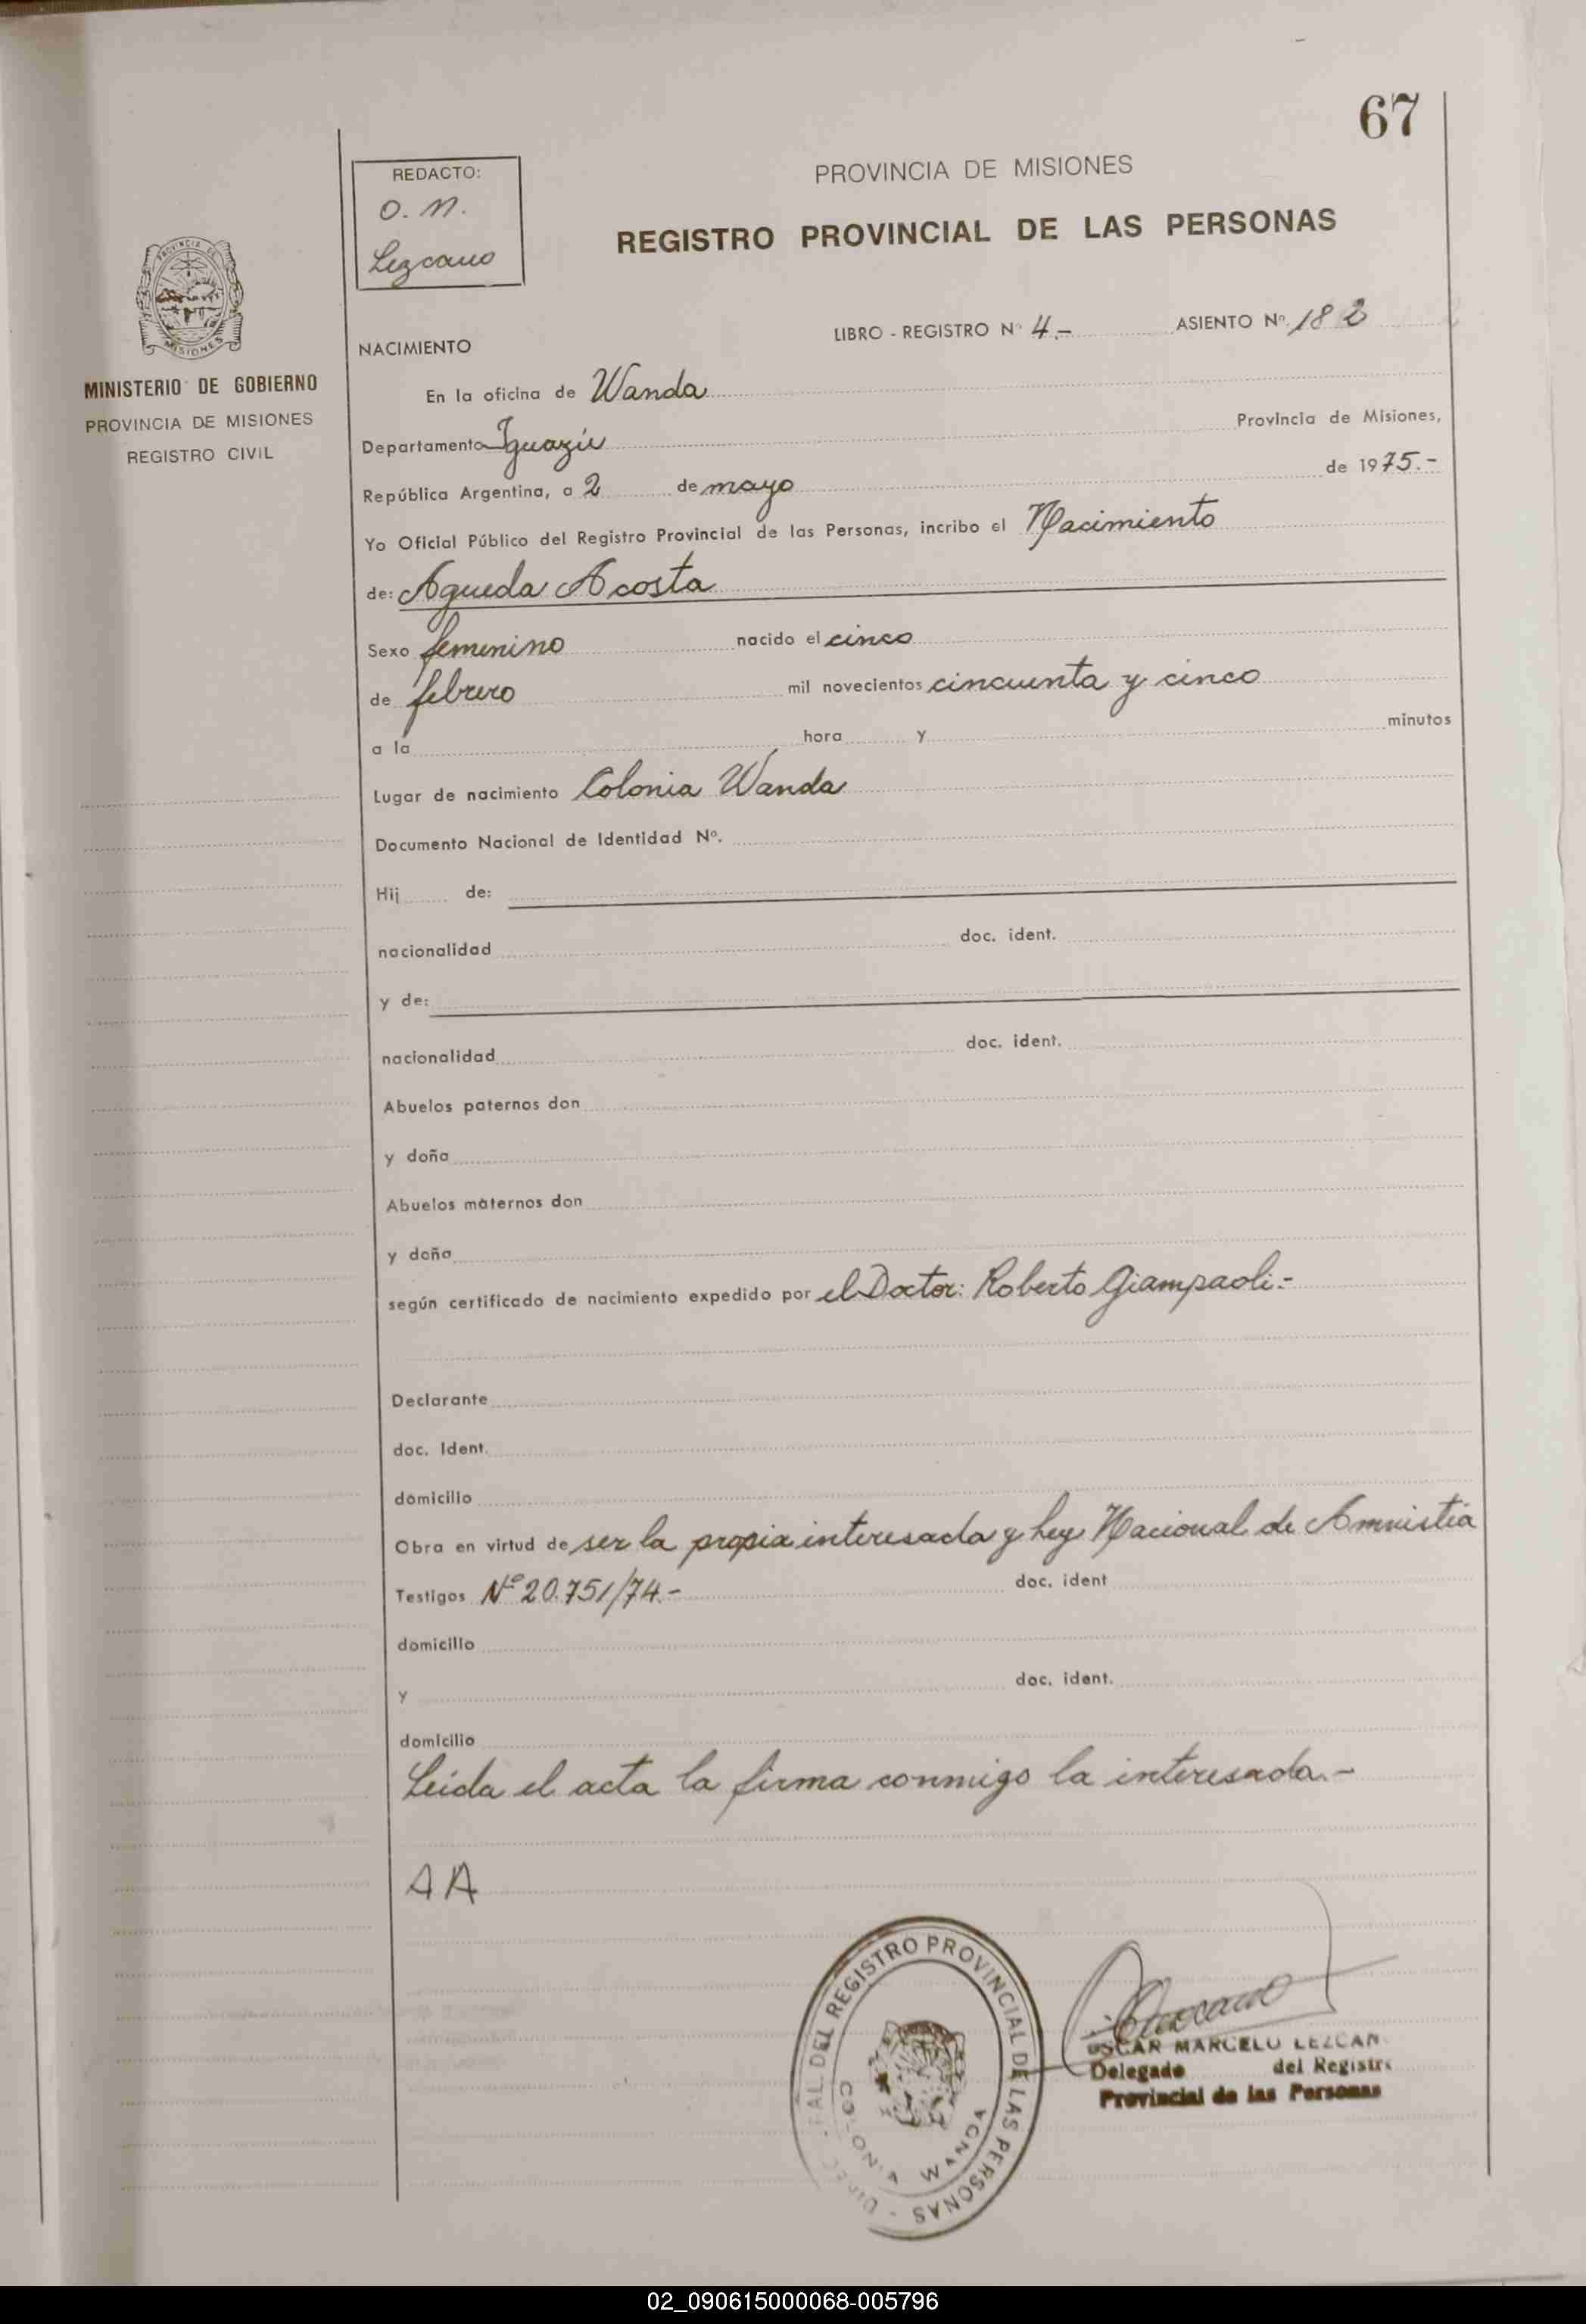 67
REDACTO:
O. M.
Lezcano
PROVINCIA DE MISIONES
REGISTRO PROVINCIAL DE LAS PERSONAS
PROVINCIA DE
MISIONES
MINISTERIO DE GOBIERNO
PROVINCIA DE MISIONES
REGISTRO CIVIL
NACIMIENTO
LIBRO - REGISTRO Nº 4.- ASIENTO Nº. 182
En la oficina de Wanda
Departamento Iguazú Provincia de Misiones,
República Argentina, a 2 de mayo de 1975.-
Yo Oficial Público del Registro Provincial de las Personas, incribo el Nacimiento
de: Agueda Acosta
Sexo femenino nacido el cinco
de febrero mil novecientos cincuenta y cinco
a la hora y minutos
Lugar de nacimiento Colonia Wanda
Documento Nacional de Identidad Nº.
Hij de:
nacionalidad doc. ident.
y de:
nacionalidad doc. ident.
Abuelos paternos don
y doña
Abuelos maternos don
y doña
según certificado de nacimiento expedido por el Doctor: Roberto Giampaoli.-
Declarante
doc. Ident.
domicilio
Obra en virtud de ser la propia interesada y Ley Nacional de Amnistia
Testigos Nº 20.751/74.- doc. ident
domicilio
y doc. ident.
domicilio
Leida el acta la firma conmigo la interesada.-
AA
DEL REGISTRO PROVINCIAL DE LAS PERSONAS
COLONIA WANDA
Lezcano
OSCAR MARCELO LEZCAN
Delegado del Registr
Provincial de las Personas
02_090615000068-005796